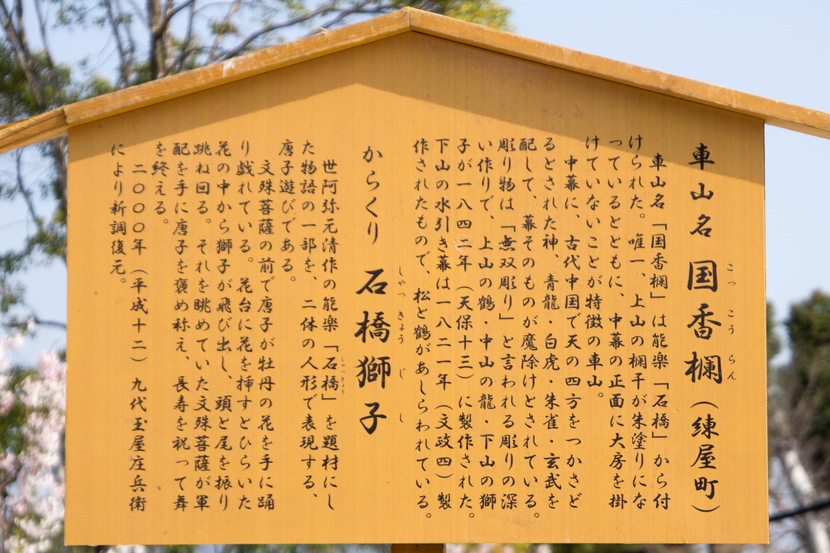 車山名 国香欄(練屋町)
こっこうらん
車山名「国香欄」は能楽「石橋」から付
けられた。唯一、上山の欄干が朱塗りにな
っているとともに、中幕の正面に大房を掛
けていないことが特徴の車山。
中幕に、古代中国で天の四方をつかさど
るとされた神、青龍・白虎・朱雀・玄武を
配して、幕そのものが魔除けとされている。
彫り物は「無双彫り」と言われる彫りの深
い作りで、上山の鶴・中山の龍・下山の獅
子が一八四二年(天保十三)に製作された。
下山の水引き幕は一八二一年(文政四)製
作されたもので、松と鶴があしらわれている。
からくり 石橋獅子
しゃっきょうじし
世阿弥元清作の能楽「石橋」を題材にし
しゃっきょう
た物語の一部を、二体の人形で表現する、
唐子遊びである。
文殊菩薩の前で唐子が牡丹の花を手に踊
り戯れている。花台に花を挿すとひらいた
花の中から獅子が飛び出し、頭と尾を振り
跳ね回る。それを眺めていた文殊菩薩が軍
配を手に唐子を褒め称え、長寿を祝って舞
を終える。
二〇〇〇年(平成十二)九代玉屋庄兵衛
により新調復元。